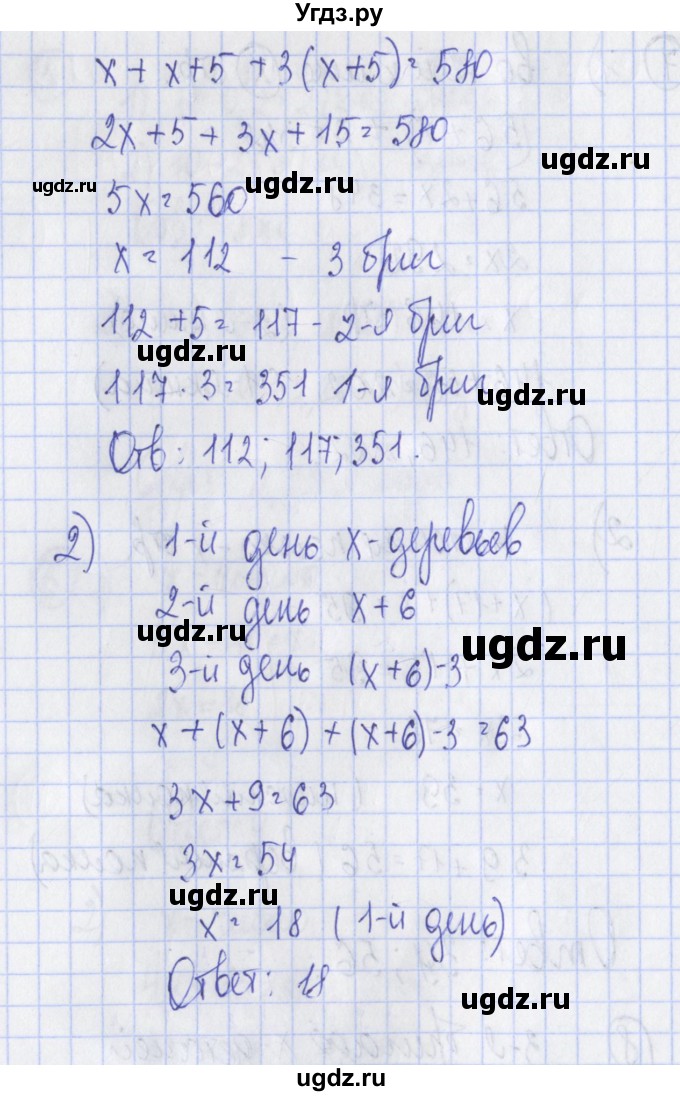 Угдз.ру
x + x+5 + 3(x+5) = 580
2x+5+3x+15=580
ugdz.ru
ugdz.ru ugdz.ru
5x=560
x = 112 - 3 бриг
112+5=117-2-я бриг
ugdz.ru
117·3=351 1-я бриг
ugdz.ru
Отв: 112; 117; 351.
ugdz.ru
2) 1-й день x-деревьев
2-й день x+6
ugdz.ru
ugdz.ru
3-й день (x+6)-3
x+(x+6)+(x+6)-3=63
3x+9=63
3x=54
ugdz.ru
x = 18 (1-й день)
Ответ: 18
ugdz.ru
ugdz.ru